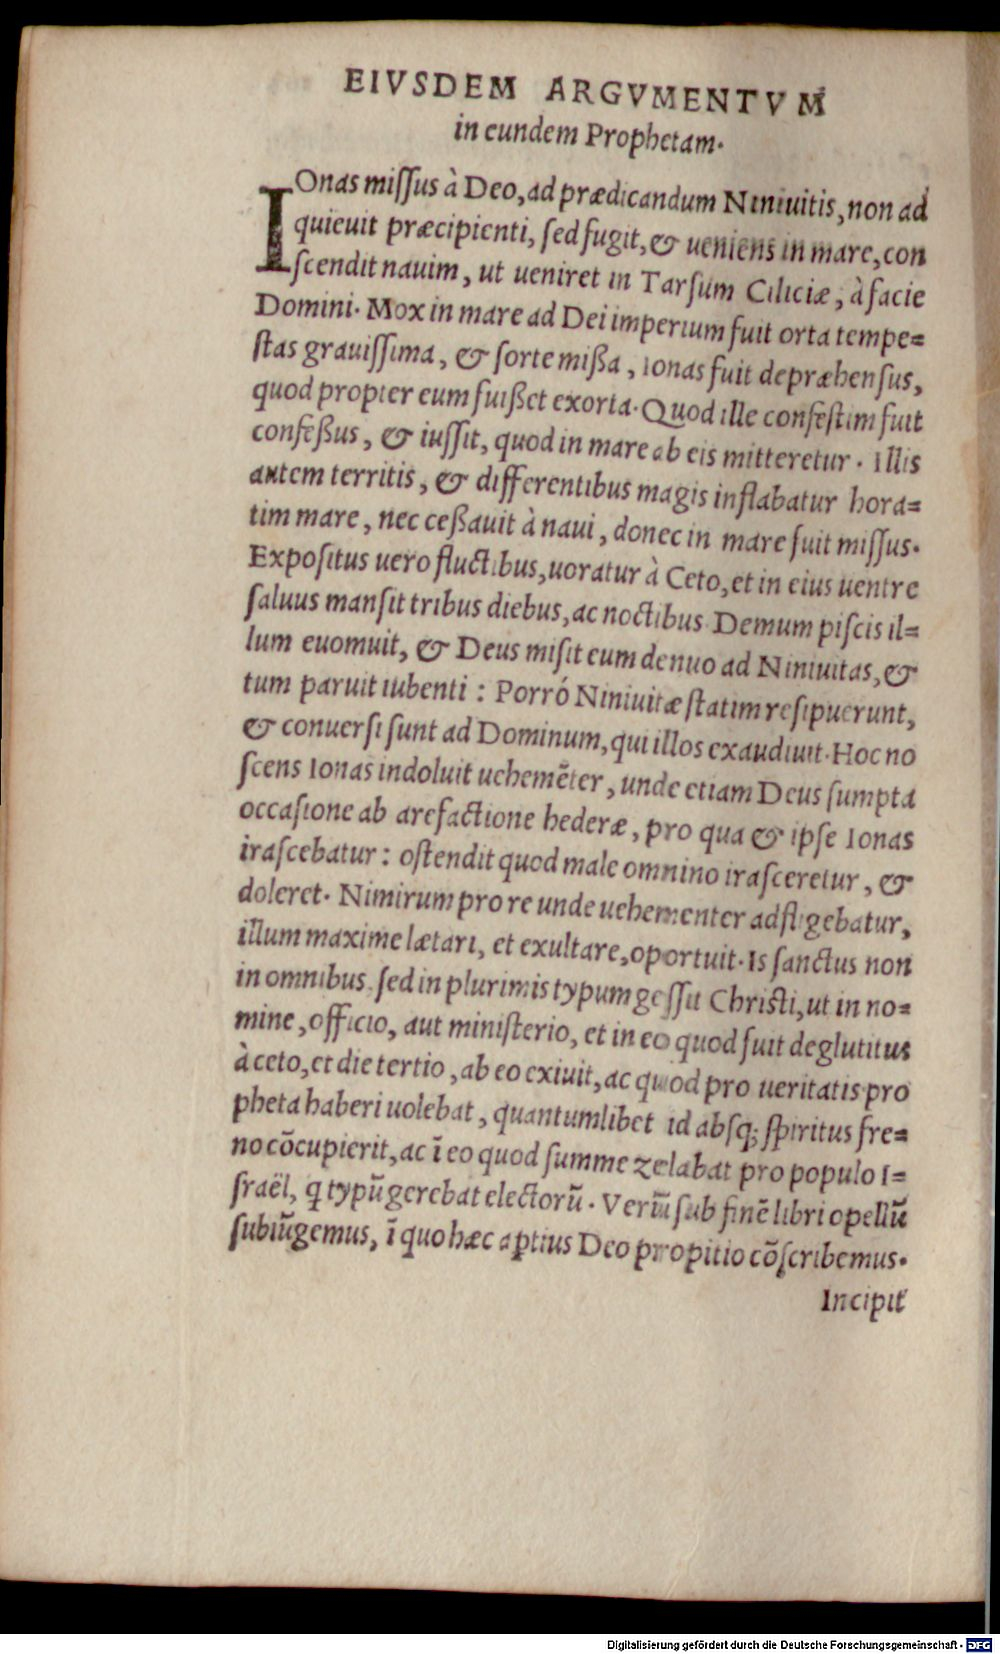 EIVSDEM ARGVMENTVM
in eundem Prophetam.
IOnas missus à Deo, ad prædicandum Niniuitis, non ad
quieuit præcipienti, sed fugit, & ueniens in mare, con
scendit nauim, ut ueniret in Tarsum Ciliciæ, à facie
Domini. Mox in mare ad Dei imperium fuit orta tempe=
stas grauissima, & sorte mißa, Ionas fuit depræhensus,
quod propter eum fuißet exorta. Quod ille confestim fuit
confeßus, & iussit, quod in mare ab eis mitteretur. Illis
autem territis, & differentibus magis inflabatur hora=
tim mare, nec ceßauit à naui, donec in mare fuit missus.
Expositus uero fluctibus, uoratur à Ceto, et in eius uentre
saluus mansit tribus diebus, ac noctibus. Demum piscis il=
lum euomuit, & Deus misit eum denuo ad Niniuitas, &
tum paruit iubenti : Porró Niniuitæ statim resipuerunt,
& conuersi sunt ad Dominum, qui illos exaudiuit. Hoc no
scens Ionas indoluit uehemēter, unde etiam Deus sumpta
occasione ab arefactione hederæ, pro qua & ipse Ionas
irascebatur : ostendit quod male omnino irasceretur, &
doleret. Nimirum pro re unde uehementer adfligebatur,
illum maxime lætari, et exultare, oportuit. Is sanctus non
in omnibus, sed in plurimis typum gessit Christi, ut in no=
mine, officio, aut ministerio, et in eo quod fuit deglutitus
à ceto, et die tertio, ab eo exiuit, ac quod pro ueritatis pro
pheta haberi uolebat, quantumlibet id absq; spiritus fre=
no cōcupierit, ac ī eo quod summe zelabat pro populo I=
sraël, q typū gerebat electorū. Verū sub finē libri opellū
subiūgemus, ī quo hæc aptius Deo propitio cōscribemus.
Incipit
Digitalisierung gefördert durch die Deutsche Forschungsgemeinschaft - DFG